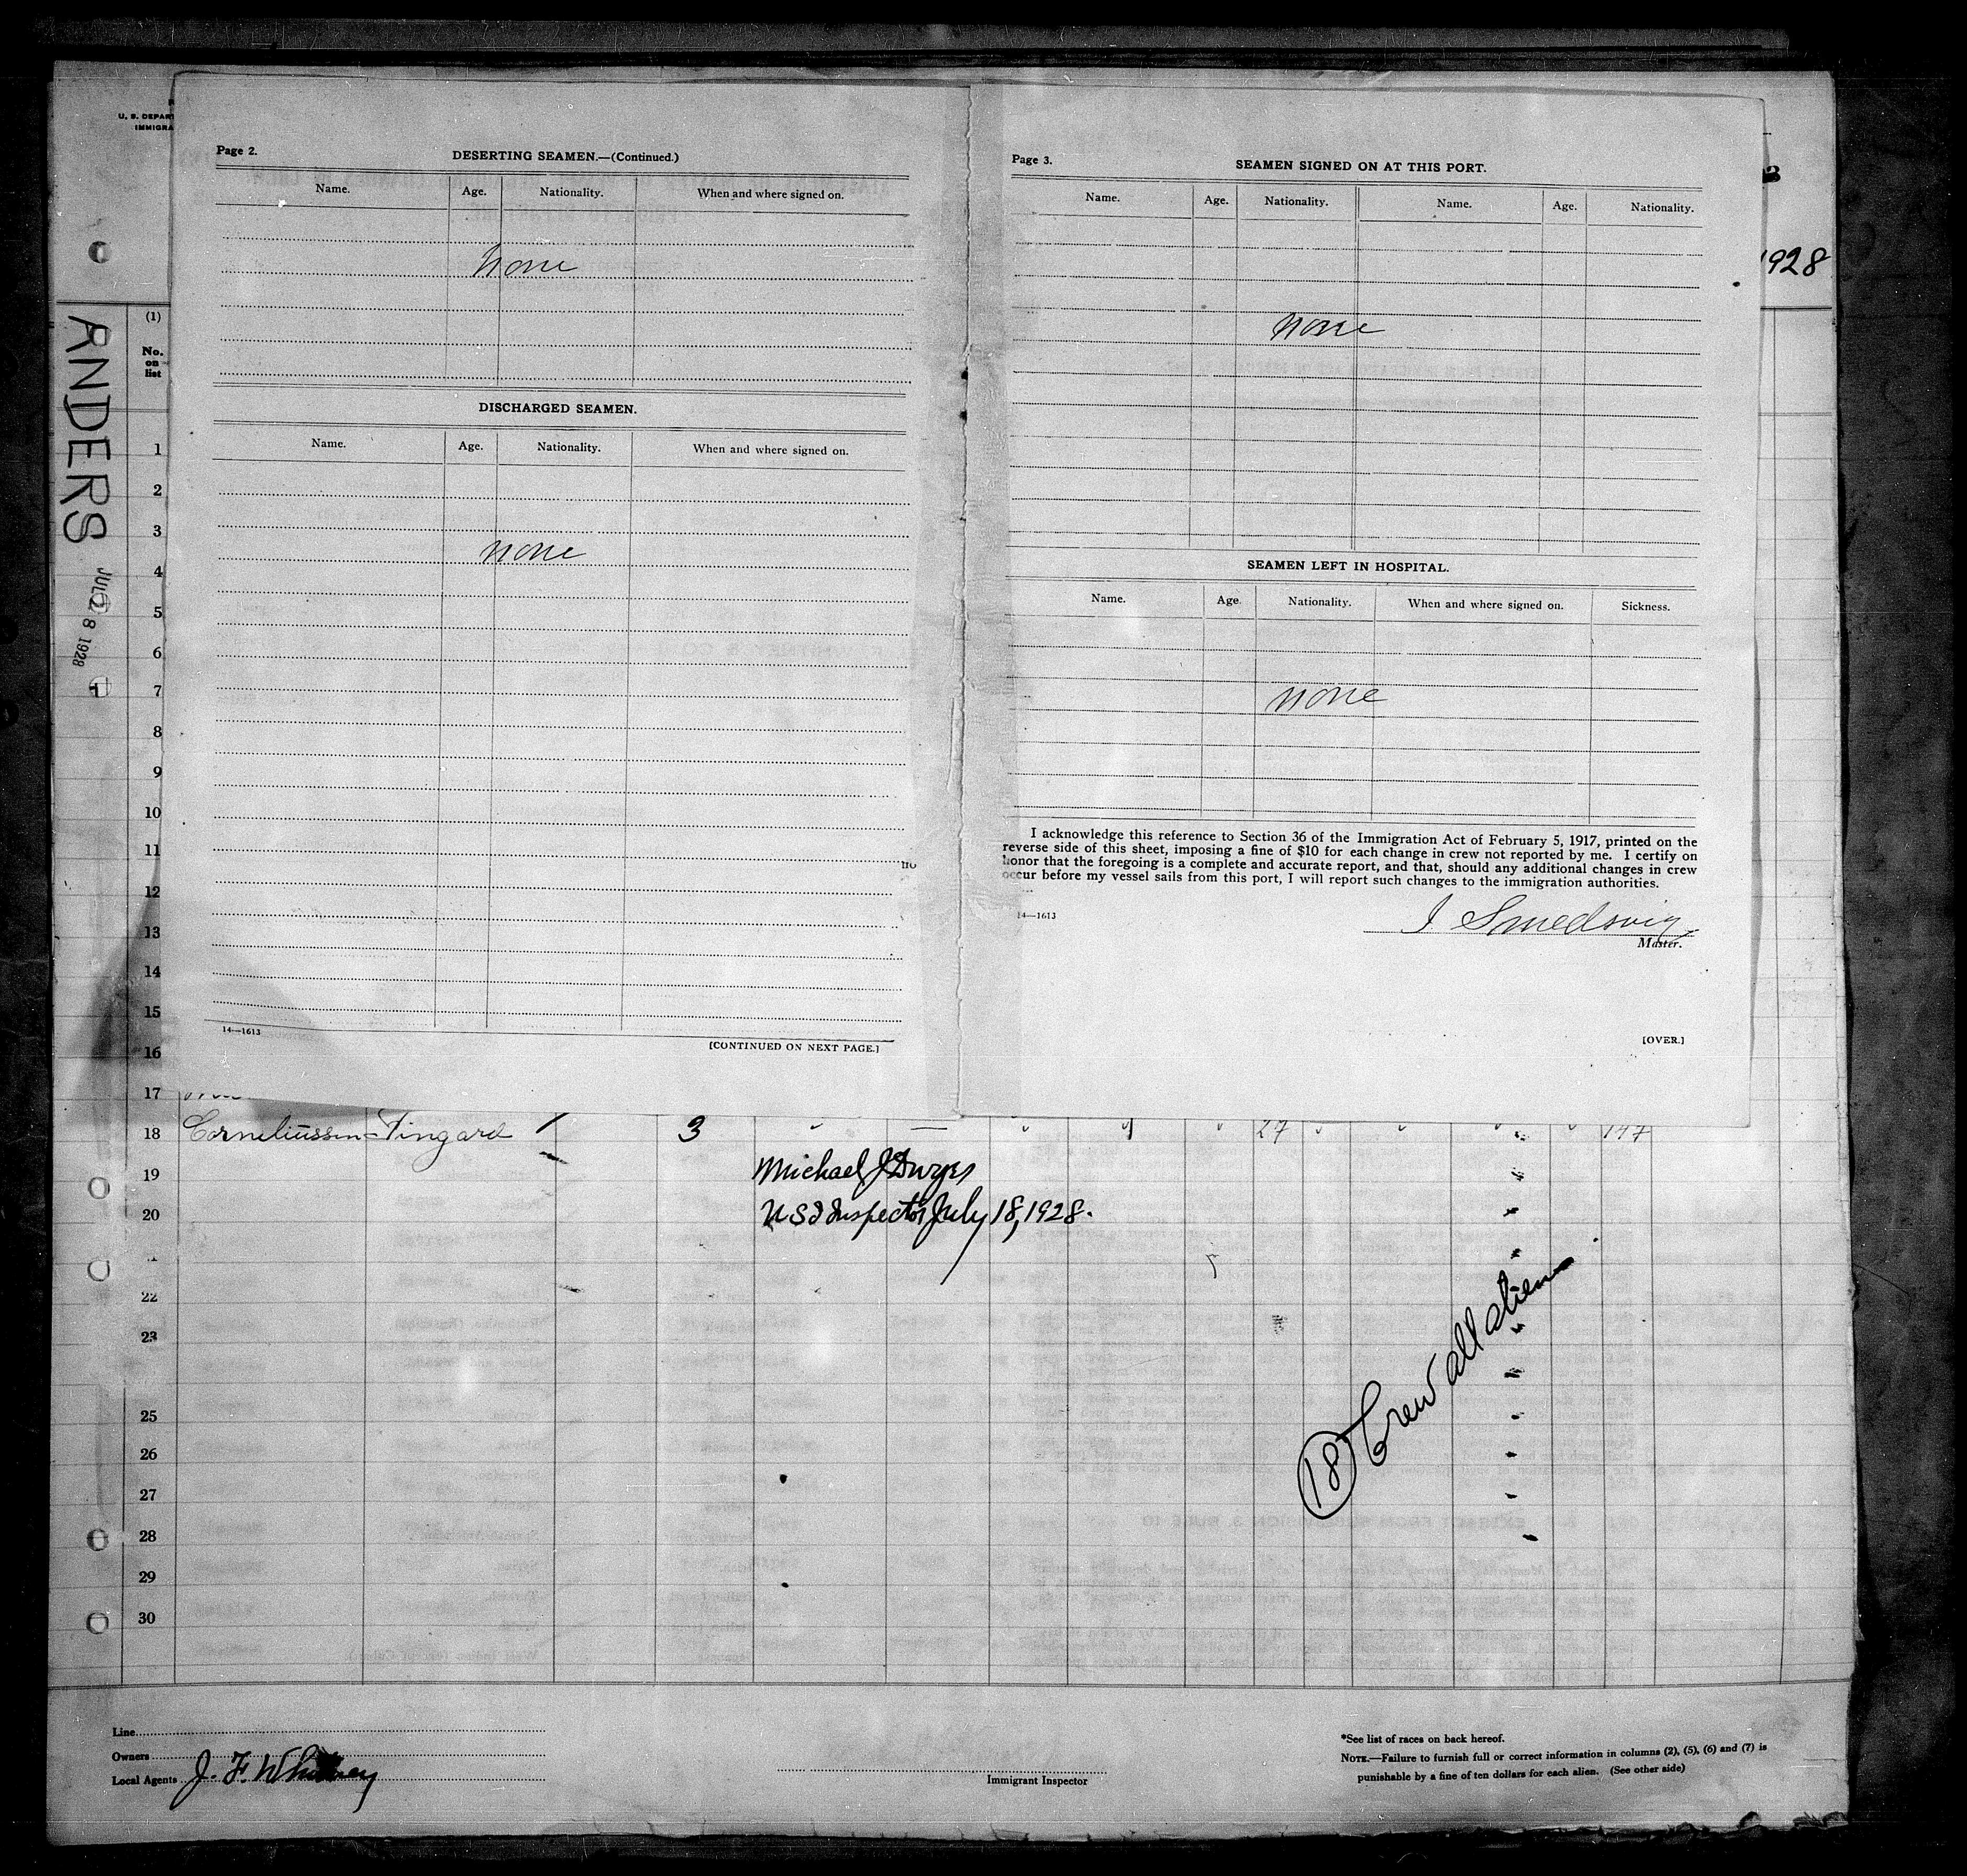 U. S. DEPAR
IMMIGRA
1928
ANDERS
JUL 28 1928
Page 2.
DESERTING SEAMEN.—(Continued.)
Name. Age. Nationality. When and where signed on.
none
DISCHARGED SEAMEN.
Name. Age. Nationality. When and where signed on.
none
14—1613
[CONTINUED ON NEXT PAGE.]
Page 3.
SEAMEN SIGNED ON AT THIS PORT.
Name. Age. Nationality. Name. Age. Nationality.
none
SEAMEN LEFT IN HOSPITAL.
Name. Age. Nationality. When and where signed on. Sickness.
none
I acknowledge this reference to Section 36 of the Immigration Act of February 5, 1917, printed on the
reverse side of this sheet, imposing a fine of $10 for each change in crew not reported by me. I certify on
honor that the foregoing is a complete and accurate report, and that, should any additional changes in crew
occur before my vessel sails from this port, I will report such changes to the immigration authorities.
14—1613
I Smedsvig
Master.
[OVER.]
(1)
No.
on
list
1
2
3
4
5
6
7
8
9
10
11
12
13
14
15
16
17
18 Corneliussen - Fingard 3 27 147
19 Michael J Dwyer
20 U S I Inspector July 18, 1928.
22
23
25
26
27
28
29
30
18 Crew all aliens
Line
Owners
Local Agents J. F. Whitney
Immigrant Inspector
*See list of races on back hereof.
NOTE.—Failure to furnish full or correct information in columns (2), (5), (6) and (7) is
punishable by a fine of ten dollars for each alien. (See other side)